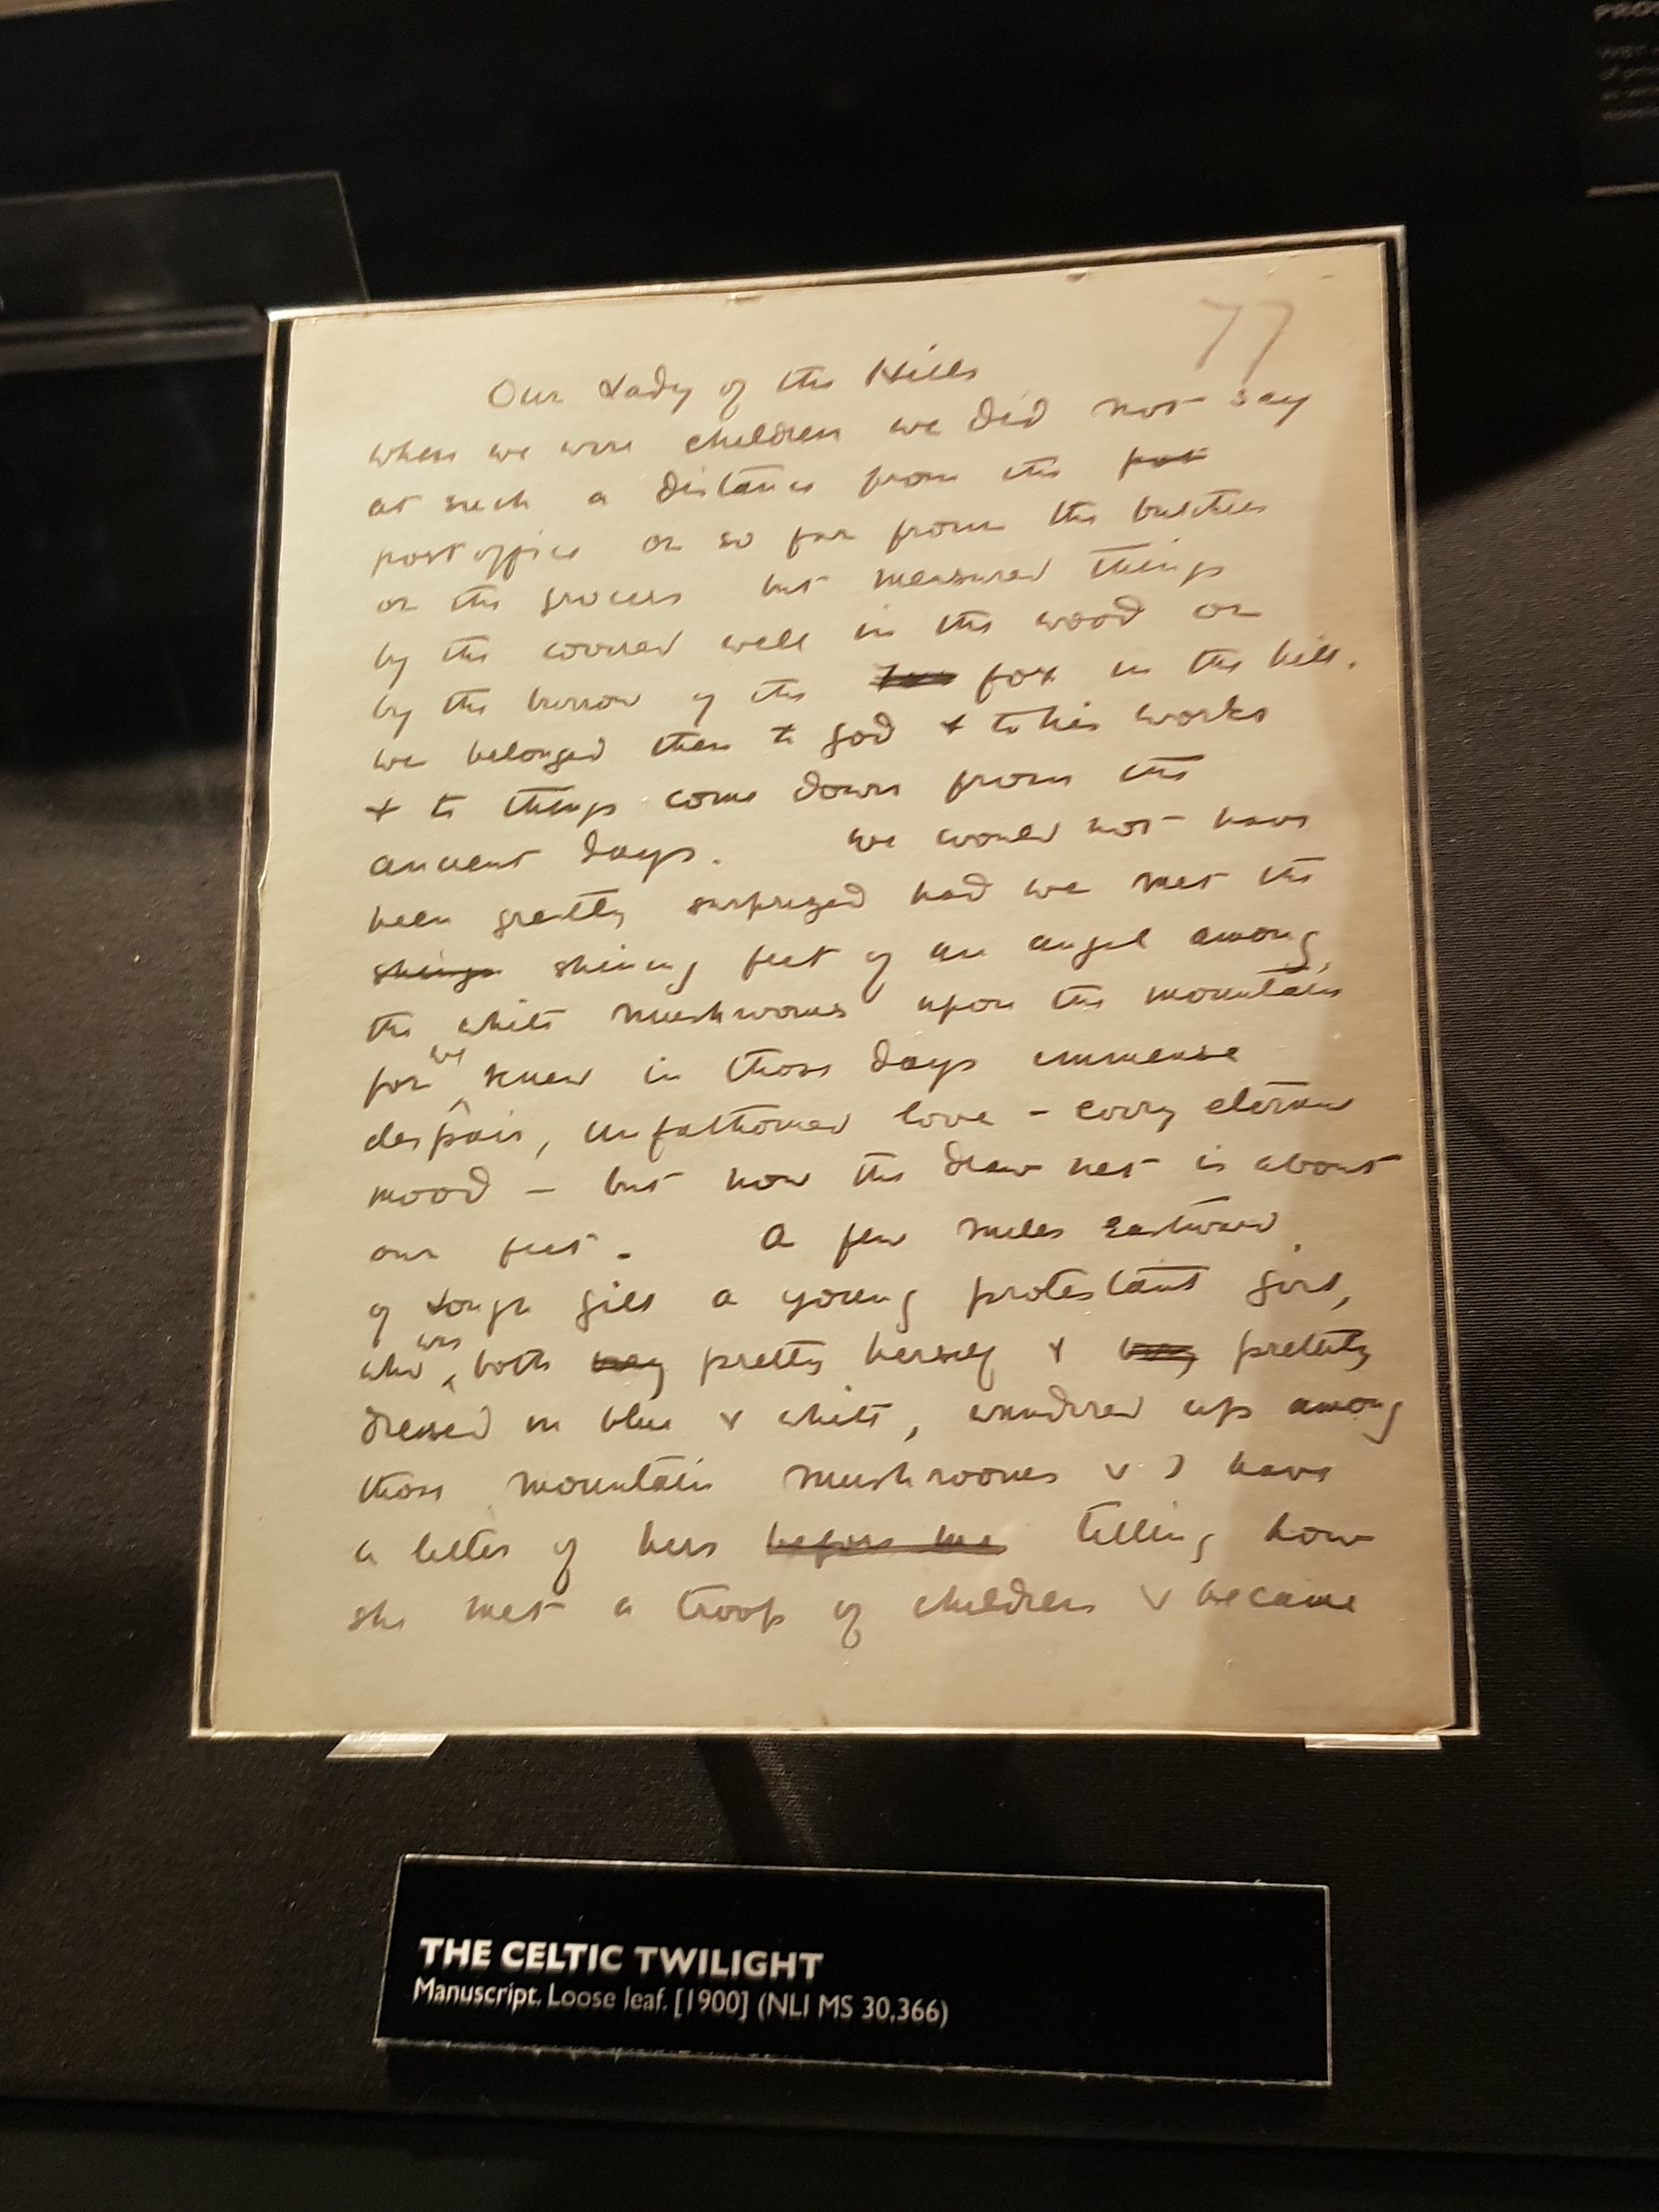 PRO
77
Our Lady of the Hills
when we were children we did not say
at such a distance from the
post office or so far from the butchers
or the grocers but measured things
by the covered well in the wood or
by the burrow of the fox in the hill.
we belonged then to god & to his works
& to things come down from the
ancient days. We would not have
been greatly surprized had we met the
shining feet of an angel among
the white mushrooms upon the mountain
for we knew in those days immense
despair, unfathomed love - every eternal
mood - but now the draw net is about
our feet. A few miles Eastward
of Lough gill a young protestant girl,
who was both pretty herself & prettily
dressed in blue & white, wandered up among
those mountain mushrooms & I have
a letter of hers before me telling how
she met a troop of children & became
THE CELTIC TWILIGHT
Manuscript. Loose leaf. [1900] (NLI MS 30,366)